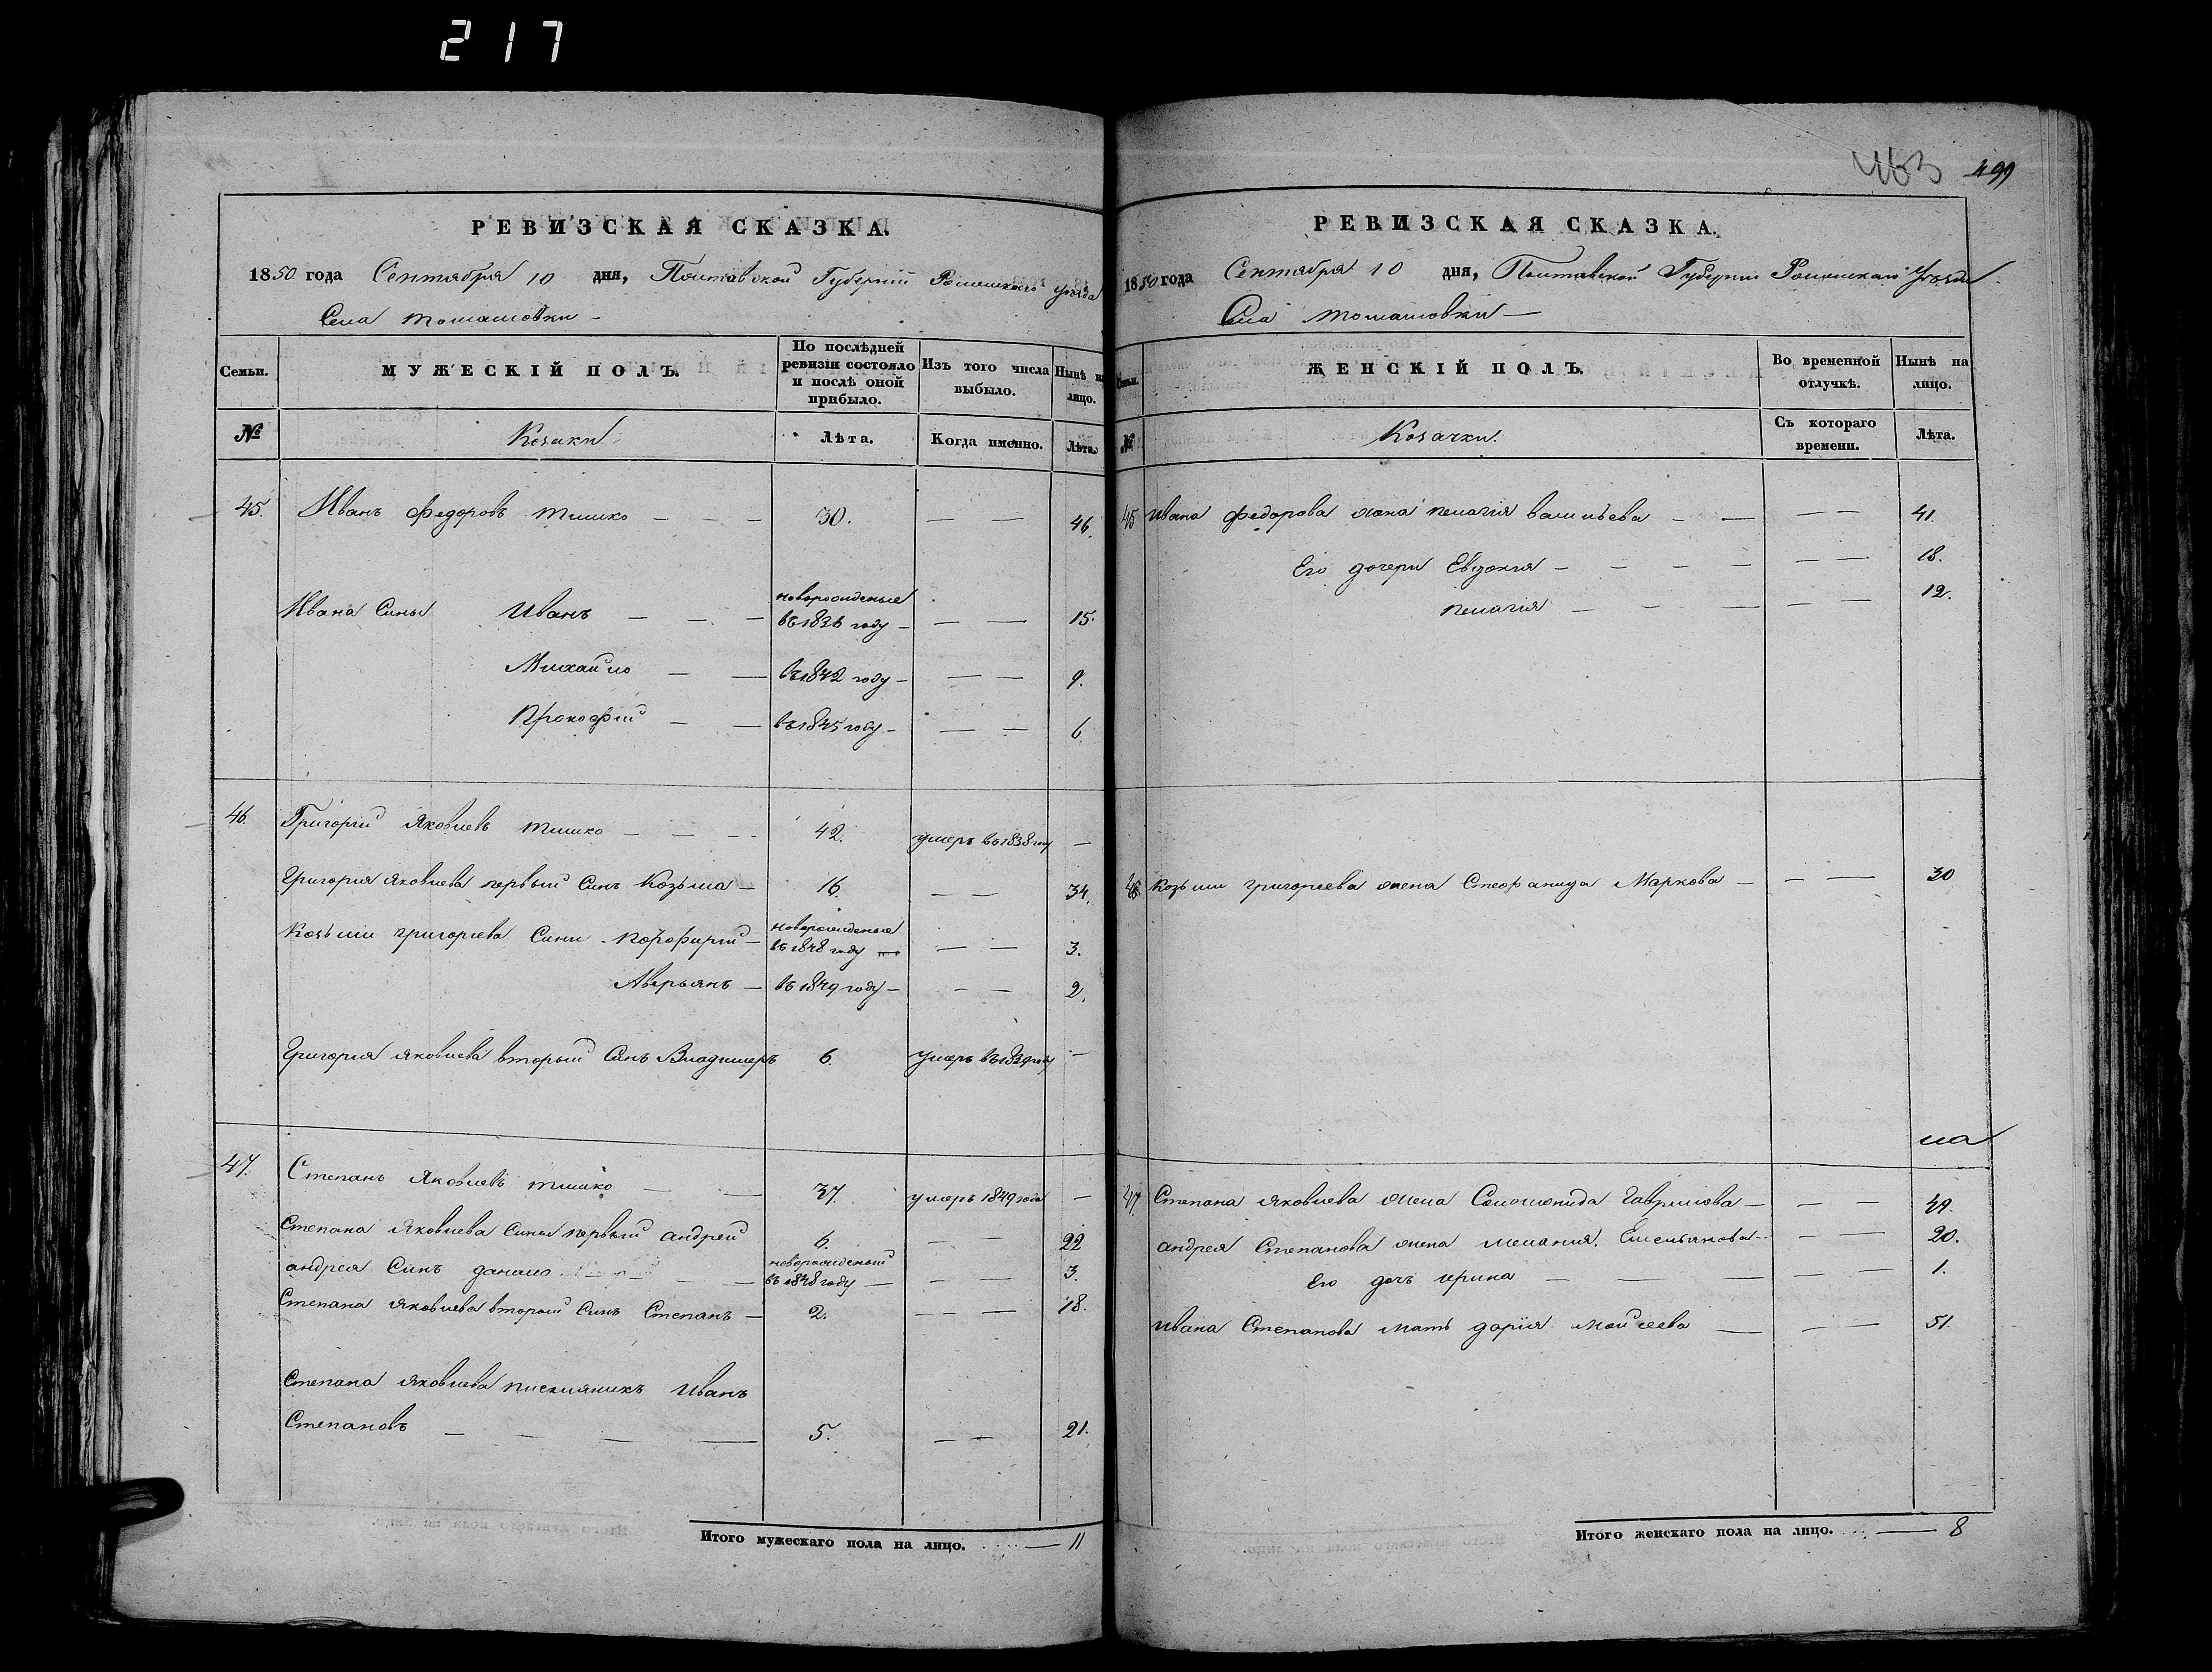 217
463 499
РЕВИЗСКАЯ СКАЗКА.
1850 года Сентября 10 дня, Полтавской Губерніи Роменского уѣзда
Села Томашовки
Семьи. МУЖЕСКІЙ ПОЛЪ. По послѣдней ревизіи состояло и послѣ оной прибыло. Изъ того числа выбыло. Нынѣ на лицо.
№ Козаки Лѣта. Когда именно. Лѣта.
45. Иванъ Федоровъ Тишко — — — 30. — — 46.
Ивана Сины Иванъ — — — новорожденые въ 1836 году — — — 15.
Михайло — — въ 1842 году — — — 9.
Прокофій — — въ 1845 году — — — 6.
46. Григорій Яковлевъ Тишко — — — 42. умеръ въ 1838 году —
Григорія Яковлева первый Синъ Козьма — 16. — — 34.
Козьми Григоріева Сини Порофирій — новорожденые въ 1848 году — — — 3.
Аверьянъ — въ 1849 году — — — 2.
Григорія Яковлева вторый Синъ Владимеръ 6. умеръ въ 1839 году —
47. Степанъ Яковлевъ Тишко — — 37. умеръ 1849 года —
Степана Яковлева Сины первый андрей 6. — — 22
андрея Синъ данило — — новорожденый въ 1848 году — — — 3.
Степана Яковлева вторый Синъ Степанъ — 2. — — 18.
Степана Яковлева писмяникъ Иванъ
Степановъ — — — — 5. — — 21.
Итого мужескаго пола на лицо. — 11
РЕВИЗСКАЯ СКАЗКА.
1850 года Сентября 10 дня, Полтавской Губерніи Роменскаго Уѣзда
Села Томашовки —
Семьи. ЖЕНСКІЙ ПОЛЪ. Во временной отлучкѣ. Нынѣ на лицо.
№ Козачки. Съ котораго времени. Лѣта.
45 Ивана Федорова жена пелагія васильева — — — — 41.
Его дочери Евдокия — — — — — — 18.
пелагія — — — — — 12.
46 Козьми григорїева жена Стефанида Маркова — — — 30
47. Степана Яковлева жена Соломонида Гаврилова — — — 49.
андрея Степанова жена мелания Емельянова — — — 20.
Его дочь ирина — — — — — 1.
Ивана Степанова мать дарія Мойсеева — — — 51.
Итого женскаго пола на лицо. — 8